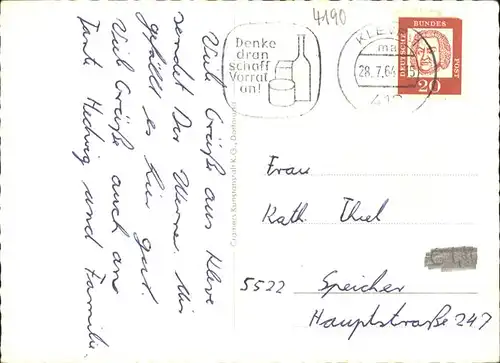 Viele Grüße aus Kleve
sendet Dir Werner. Mir
gefällt es hier gut.
Viele Grüße auch an
Tante Hedwig und Familie.
4190
Denke
dran
schaff
Vorrat
an!
KLEVE
28.7.64.-15
419
DEUTSCHE BUNDES POST
20
Cramers Kunstanstalt K.G., Dortmund
Frau
Kath. Thiel
5522 Speicher
Hauptstraße 247